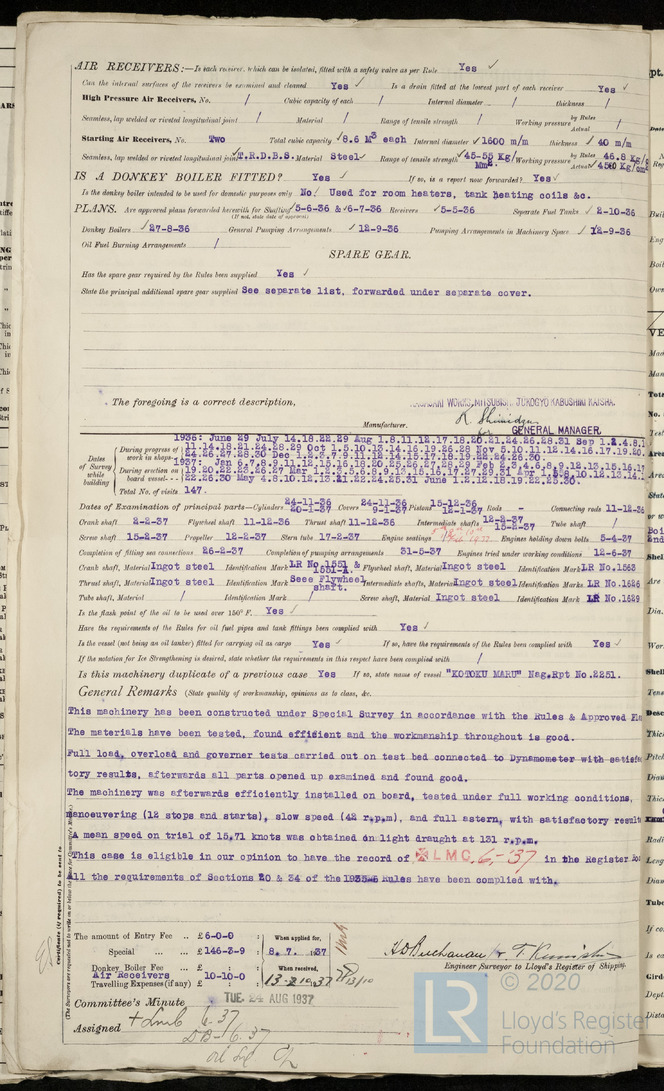 AIR RECEIVERS:—Is each receiver, which can be isolated, fitted with a safety valve as per Rule Yes ✓
Can the internal surfaces of the receivers be examined and cleaned Yes ✓ Is a drain fitted at the lowest part of each receiver Yes ✓
High Pressure Air Receivers, No. / Cubic capacity of each / Internal diameter / thickness /
Seamless, lap welded or riveted longitudinal joint / Material / Range of tensile strength / Working pressure by Rules Actual /
Starting Air Receivers, No. Two Total cubic capacity ✓8.6 M³ each Internal diameter ✓1600 m/m thickness ✓ 40 m/m
Seamless, lap welded or riveted longitudinal joint T.R.D.B.S. Material Steel✓ Range of tensile strength ✓45-55 Kg/Mm². Working pressure by Rules 46.8 Kg/ Actual
IS A DONKEY BOILER FITTED? Yes ✓ If so, is a report now forwarded? Yes✓
Is the donkey boiler intended to be used for domestic purposes only No. Used for room heaters, tank heating coils &c.
PLANS. Are approved plans forwarded herewith for Shafting ✓5-6-36 & ✓6-7-36 Receivers ✓5-5-36 Separate Fuel Tanks ✓ 2-10-36
(If not, state date of approval)
Donkey Boilers ✓27-8-36 General Pumping Arrangements ✓12-9-36 Pumping Arrangements in Machinery Space ✓ 12-9-36
Oil Fuel Burning Arrangements /
SPARE GEAR.
Has the spare gear required by the Rules been supplied Yes ✓
State the principal additional spare gear supplied See separate list, forwarded under separate cover.
The foregoing is a correct description,
NAGASAKI WORKS, MITSUBISHI JUKOGYO KABUSHIKI KAISHA.
Manufacturer.
for GENERAL MANAGER.
Dates of Survey while building
During progress of work in shops--
1936: June 29 July 14.18.22.29 Aug 1.8.11.12.17.18.20.21.24.26.28.31 Sep 1.2.4.8.1
11.14.18.21.24.28.29 Oct 1.5.10.13.14.16.19.26.28 Nov 5.10.11.12.14.16.17.19.20.
24.26.27.28.30 Dec 1.2.3.7.9.11.12.14.15.17.18.19.22.24.26.30.
During erection on board vessel---
1937: Jan 6.7.8.9.11.12.15.16.18.20.25.26.27.28.29 Feb 2.3.4.6.8.9.12.13.15.16.17
22.26.30 May 4.8.10.12.13.21.22.24.25.31 June 1.2.12.18.19.22.25.30.
Total No. of visits 147.
Dates of Examination of principal parts—Cylinders 24-11-36 20-1-37 Covers 24-11-36 9-1-37 Pistons 15-12-36 12-1-37 Rods - Connecting rods 11-12-36
Crank shaft 2-2-37 Flywheel shaft 11-12-36 Thrust shaft 11-12-36 Intermediate shafts 12-2-37 15-2-37 Tube shaft /
Screw shaft 15-2-37 Propeller 12-2-37 Stern tube 17-2-37 Engine seatings Engines holding down bolts 5-4-37
Completion of fitting sea connections 26-2-37 Completion of pumping arrangements 31-5-37 Engines tried under working conditions 12-6-37
Crank shaft, Material Ingot steel Identification Mark LR No.1551 & 1551-A. Flywheel shaft, Material Ingot steel Identification Mark LR No.1563
Thrust shaft, Material Ingot steel Identification Mark Seee Flywheel shaft. Intermediate shafts, Material Ingot steel Identification Marks LR No.1626
Tube shaft, Material / Identification Mark / Screw shaft, Material Ingot steel Identification Mark LR No.1629
Is the flash point of the oil to be used over 150° F. Yes ✓
Have the requirements of the Rules for oil fuel pipes and tank fittings been complied with Yes ✓
Is the vessel (not being an oil tanker) fitted for carrying oil as cargo Yes ✓ If so, have the requirements of the Rules been complied with Yes ✓
If the notation for Ice Strengthening is desired, state whether the requirements in this respect have been complied with /
Is this machinery duplicate of a previous case Yes If so, state name of vessel "KOTOKU MARU" Nag.Rpt No.2251.
General Remarks (State quality of workmanship, opinions as to class, &c.
This machinery has been constructed under Special Survey in accordance with the Rules & Approved Pla
The materials have been tested, found efficient and the workmanship throughout is good.
Full load, overload and governer tests carried out on test bed connected to Dynamometer with satisfa
tory results, afterwards all parts opened up examined and found good.
The machinery was afterwards efficiently installed on board, tested under full working conditions,
manoeuvering (12 stops and starts), slow speed (42 r.p.m), and full astern, with satisfactory result
A mean speed on trial of 15.71 knots was obtained on light draught at 131 r.p.m.
This case is eligible in our opinion to have the record of ✠LMC. 6-37 in the Register Boo
All the requirements of Sections 20 & 34 of the Rules have been complied with.
The amount of Entry Fee .. £6-0-0 When applied for,
Special ... ... £146-3-9 8. 7. 1937
Donkey Boiler Fee ... £ : : When received,
Air Receivers 10-10-0
Travelling Expenses (if any) £ : :
Engineer Surveyor to Lloyd's Register of Shipping.
Committee's Minute TUE. 24 AUG 1937
Assigned + Lmb 6-37
DB- 6.37
© 2020
LR
Lloyd's Register
Foundation